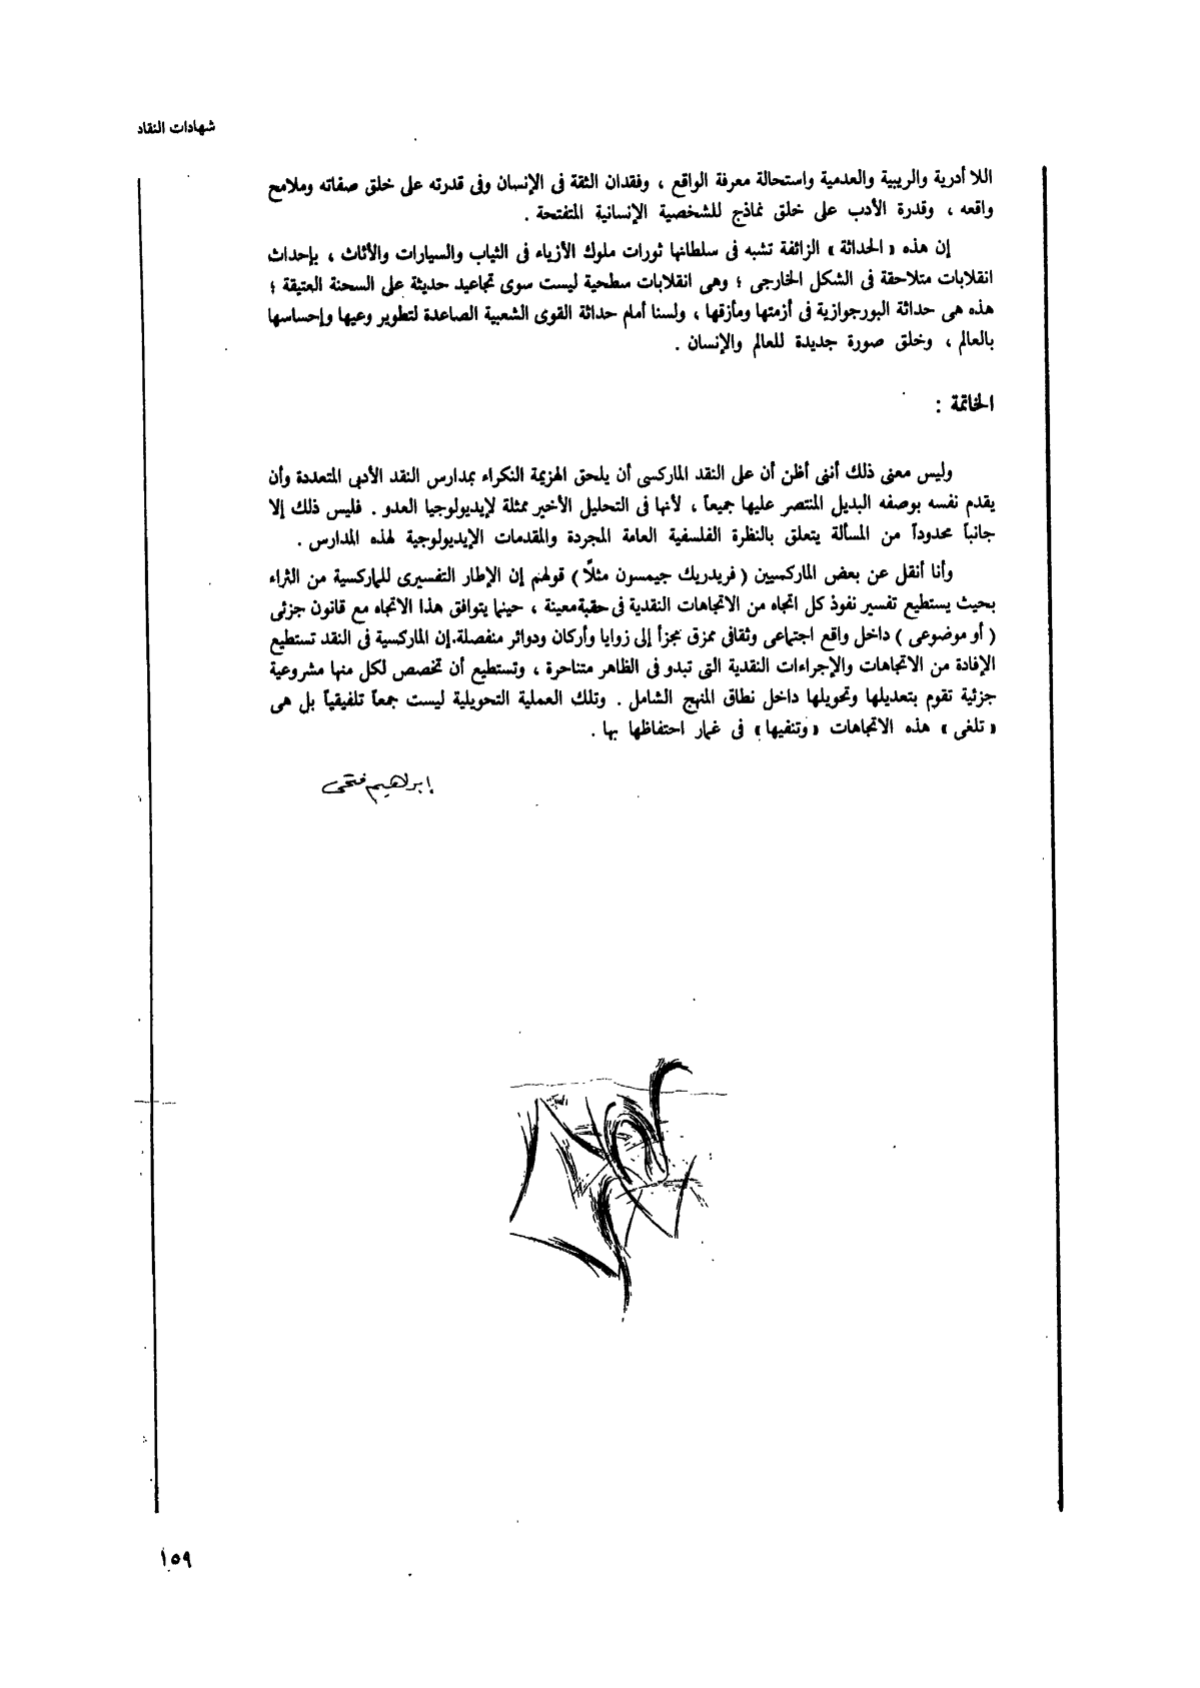 شهادات النقاد
اللا أدرية والريبية والعدمية واستحالة معرفة الواقع ، وفقدان الثقة فى الإنسان وفى قدرته على خلق صفاته وملامح
واقعه ، وقدرة الأدب على خلق نماذج للشخصية الإنسانية المتفتحة .
إن هذه « الحداثة » الزائفة تشبه فى سلطانها ثورات ملوك الأزياء فى الثياب والسيارات والأثاث ، بإحداث
انقلابات متلاحقة فى الشكل الخارجى ؛ وهى انقلابات سطحية ليست سوى تجاعيد حديثة على السحنة العتيقة ؛
هذه هى حداثة البورجوازية فى أزمتها ومأزقها ، ولسنا أمام حداثة القوى الشعبية الصاعدة لتطوير وعيها وإحساسها
بالعالم ، وخلق صورة جديدة للعالم والإنسان .
الخاتمة :
وليس معنى ذلك أننى أظن أن على النقد الماركسى أن يلحق الهزيمة النكراء بمدارس النقد الأدبى المتعددة وأن
يقدم نفسه بوصفه البديل المنتصر عليها جميعاً ، لأنها فى التحليل الأخير ممثلة لإيديولوجيا العدو . فليس ذلك إلا
جانباً محدوداً من المسألة يتعلق بالنظرة الفلسفية العامة المجردة والمقدمات الإيديولوجية لهذه المدارس .
وأنا أنقل عن بعض الماركسيين ( فريدريك جيمسون مثلًا ) قولهم إن الإطار التفسيرى للماركسية من الثراء
بحيث يستطيع تفسير نفوذ كل اتجاه من الاتجاهات النقدية فى حقبة معينة ، حينما يتوافق هذا الاتجاه مع قانون جزئى
( أو موضوعى ) داخل واقع اجتماعى وثقافى ممزق مجزأ إلى زوايا وأركان ودوائر منفصلة. إن الماركسية فى النقد تستطيع
الإفادة من الاتجاهات والإجراءات النقدية التى تبدو فى الظاهر متناحرة ، وتستطيع أن تخصص لكل منها مشروعية
جزئية تقوم بتعديلها وتحويلها داخل نطاق المنهج الشامل . وتلك العملية التحويلية ليست جمعاً تلفيقياً بل هى
« تلغى » هذه الاتجاهات « وتنفيها » فى غمار احتفاظها بها .
إبراهيم فتحى
١٥٩